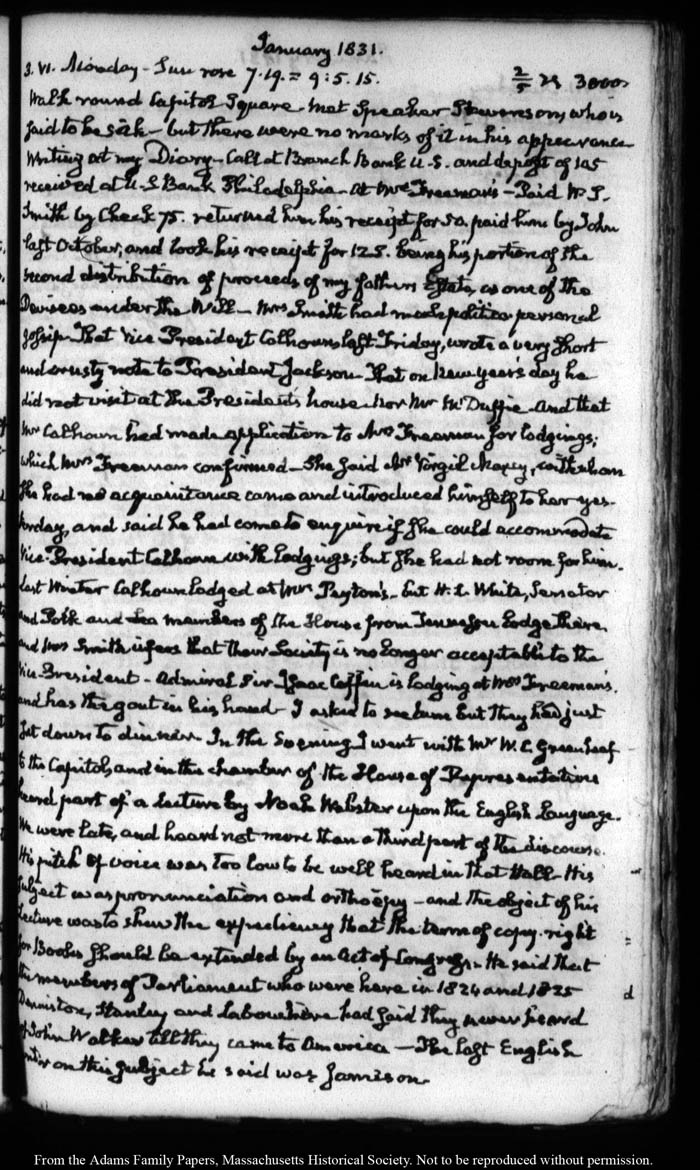 January 1831.
3. VI. Monday - Sun rose 7.19. = 9:5.15. 3000
Walk round Capitol Square. Met Speaker Stevenson, who is
said to be sick - but there were no marks of it in his appearance
Writing at my Diary - Call at Branch Bank U.S. and deposit of 105
received at U.S. Bank Philadelphia - At Mrs Freeman's - Paid W. S.
Smith by Check 75. returned him his receipt for 50. paid him by John
last October, and took his receipt for 125. being his portion of the
second distribution of proceeds of my father's Estate, as one of the
Devisees under the Will - Mrs Smith had much political personal
gossip. That Vice President Calhoun last Friday, wrote a very short
and crusty note to President Jackson. That on New year's day he
did not visit at the President's house. Nor Mr McDuffie - And that
Mr Calhoun had made application to Mrs Freeman for lodgings;
which Mrs Freeman confirmed - She said Mr Virgil Maxcy, with whom
she had no acquaintance came and introduced himself to her yes-
terday, and said he had come to enquire if she could accommodate
Vice-President Calhoun with lodgings; but she had not room for him.
Last Winter Calhoun lodged at Mrs Peyton's - but H. L. White, Senator
and Polk and Lea members of the House from Tennessee lodge there
and Mrs Smith infers that their Society is no longer acceptable to the
Vice-President - Admiral Sir Isaac Coffin is lodging at Mrs Freeman's.
and has the gout in his hand - I asked to see him but they had just
set down to dinner. In the Evening I went with Mr W. C. Greenleaf
to the Capitol, and in the chamber of the House of Representatives
heard part of a Lecture by Noah Webster upon the English Language.
We were late, and heard not more than a third part of the discourse.
His pitch of voice was too low to be well heard in that Hall - His
subject was pronunciation and orthoëpy - and the object of his
Lecture was to shew the expediency that the term of copy-right
for Books should be extended by an Act of Congress. He said that
the members of Parliament who were here in 1824 and 1825
Denniston, Stanley and Labouchere had said they never heard
of John Walker till they came to America - The last English
writer on this subject he said was Jamison.
From the Adams Family Papers, Massachusetts Historical Society. Not to be reproduced without permission.